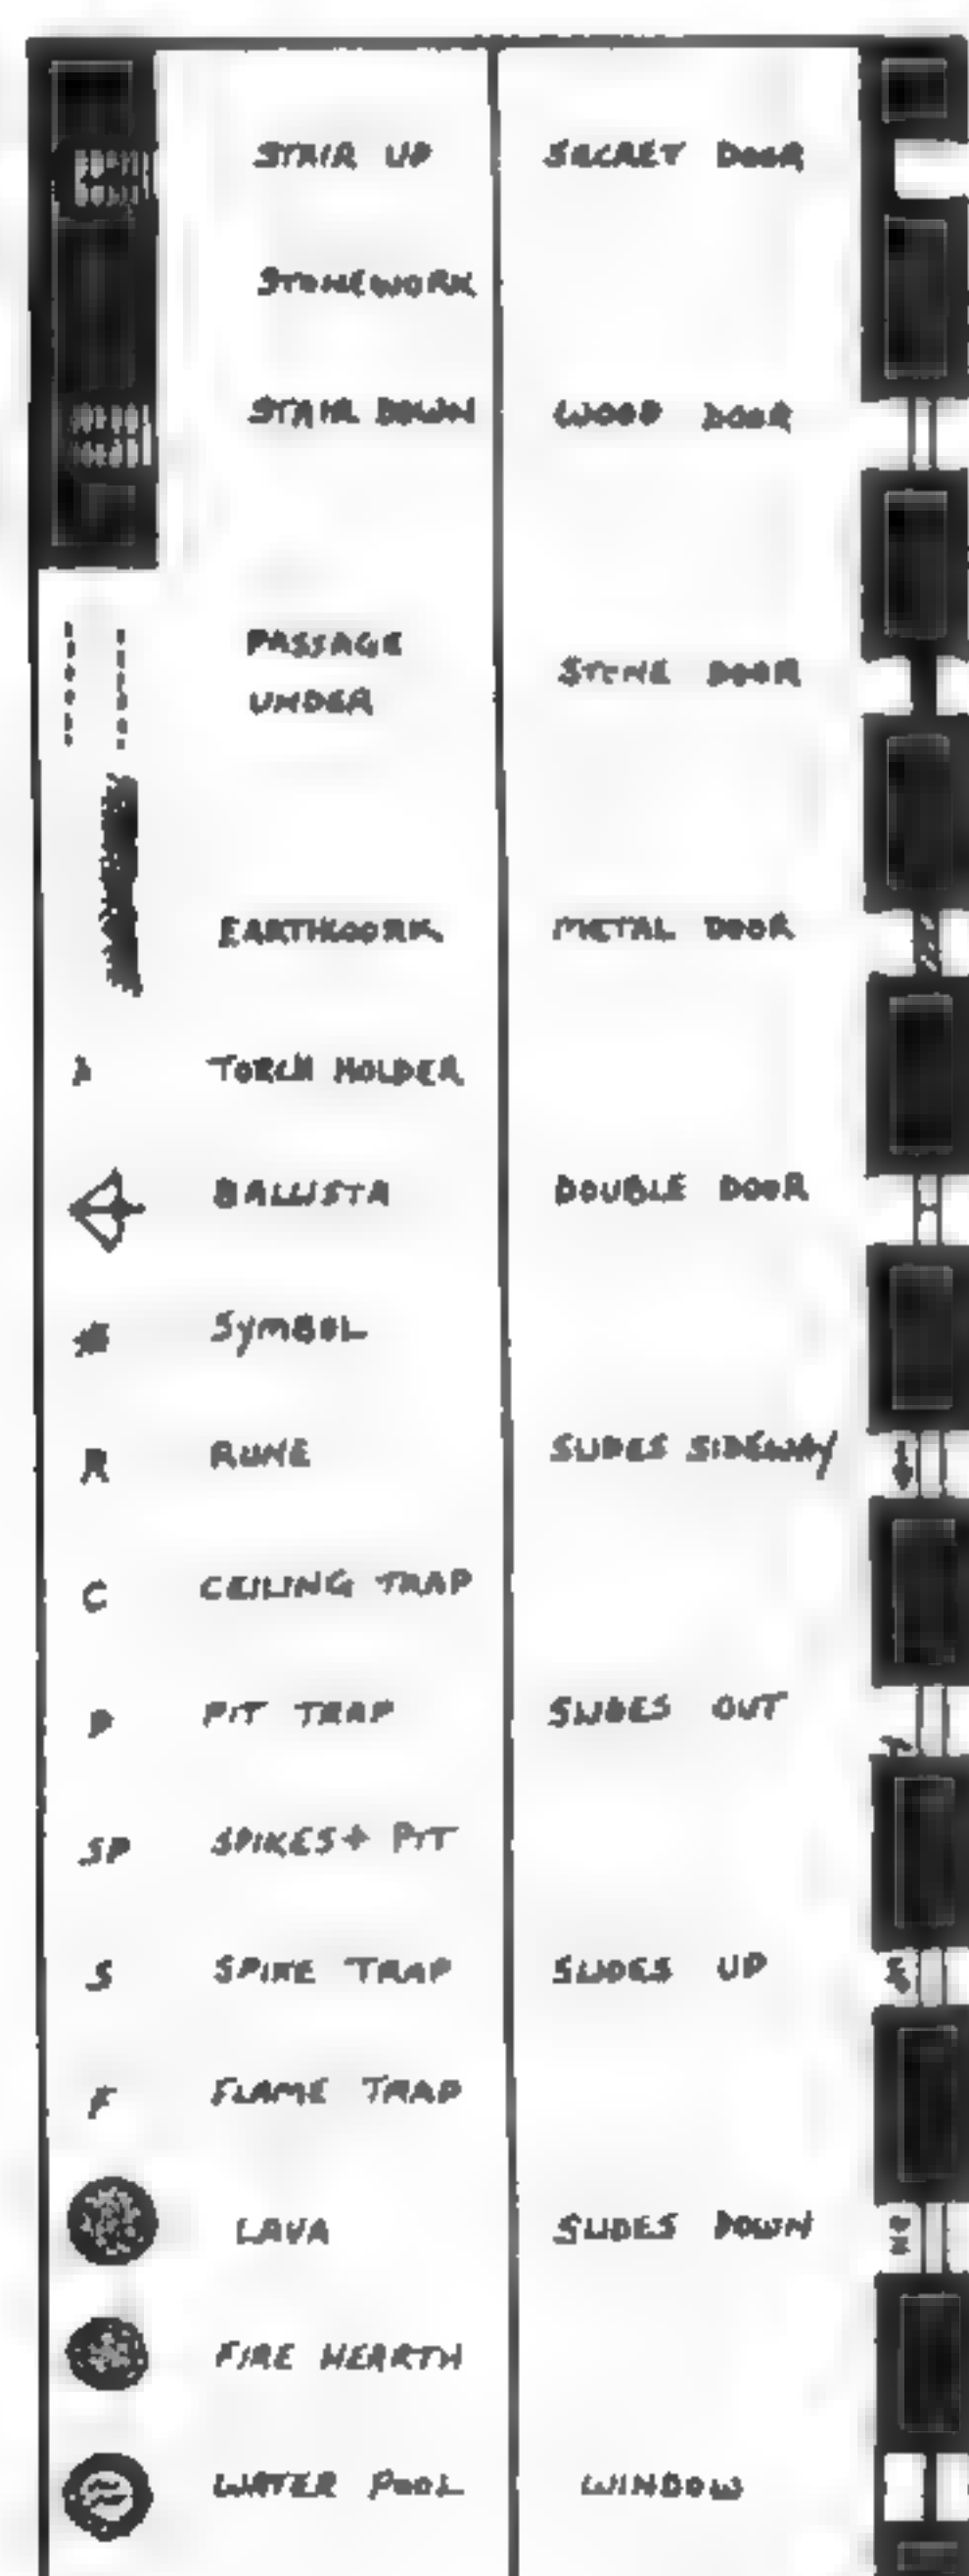 STAIR UP
STONEWORK
STAIR DOWN
PASSAGE
UNDER
EARTHWORK
TORCH HOLDER
BALLISTA
SYMBOL
R RUNE
C CEILING TRAP
P PIT TRAP
SP SPIKES + PIT
S SPIKE TRAP
F FLAME TRAP
LAVA
FIRE HEARTH
WATER POOL
SECRET DOOR
WOOD DOOR
STONE DOOR
METAL DOOR
DOUBLE DOOR
SLIDES SIDEWAY
SLIDES OUT
SLIDES UP
SLIDES DOWN
WINDOW